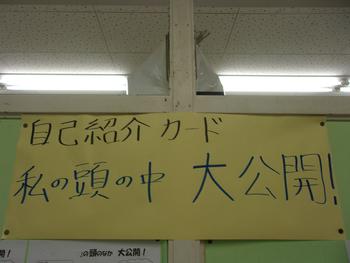 自己紹介カード
私の頭の中 大公開!
の頭のなか 大公開!